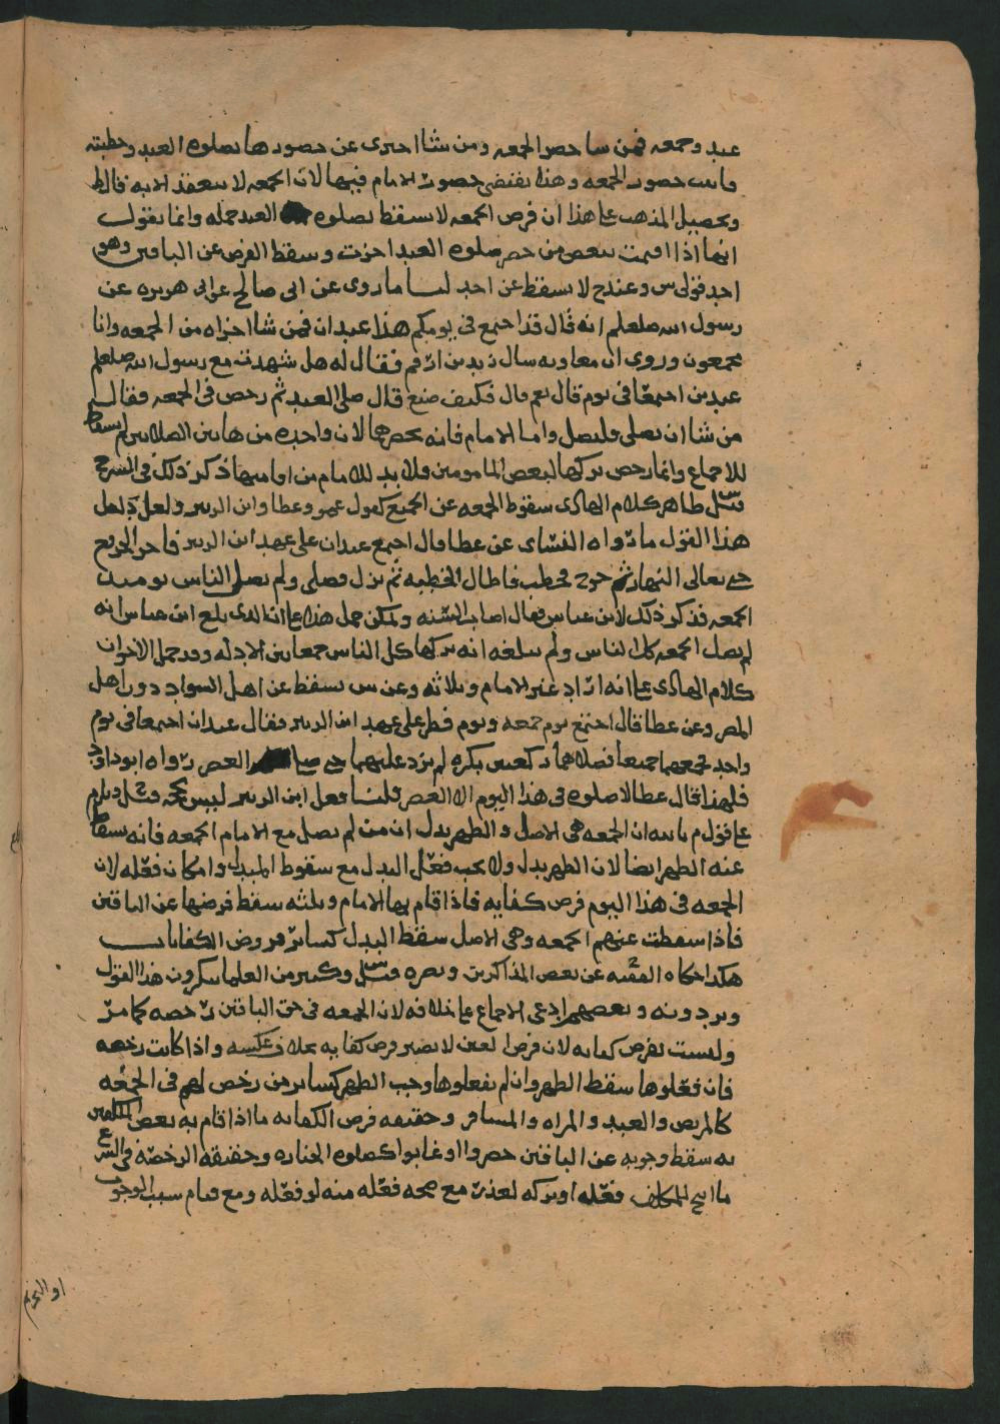 عيد وجمعه فمن شا حضر الجمعه ومن شا اجترى عن حضورها بصلوه العيد وخطبته
وهذا يقتضى حضور الامام فيهما لان الجمعه لا تنعقد الا به قال ط
وتحصيل المذهب على هذا ان فرض الجمعه لا يسقط بصلوه العيد جمله وانما نقول
انها اذا اقيمت ببعض من حضر صلوه العيد اجزت وسقط الفرض عن الباقين وهو
احد قولى س وعند ح لا يسقط عن احد لنا ما روى عن ابى صالح عن ابى هريره عن
رسول الله صلعلم انه قال قد اجتمع فى يومكم هذا عيدان فمن شا اجزاه من الجمعه وانا
مجمعون وروى ان معاويه سال زيد بن ارقم فقال له هل شهدت مع رسول الله صلعلم
عيدين اجتمعا فى يوم قال نعم قال فكيف صنع قال صلى العيد ثم رخص فى الجمعه فقال
من شا ان يصلى فليصل واما الامام فانه يحضرهما لان واحده من هاتين الصلاتين لم يسقط
للاجماع وانما رخص تركها لبعض المامومين فلا بد للامام من اقامتها ذكر ذلك فى الشرح
ظاهر كلام الهادى سقوط الجمعه عن الجميع كقول عمر وعطا وابن الزبير ولعل دليل
هذا القول ما رواه النسائى عن عطا قال اجتمع عيدان على عهد ابن الزبير فاخر الخروج
حتى تعالى النهار ثم خرج فخطب فاطال الخطبه ثم نزل فصلى ولم يصلى الناس يوميذ
الجمعه فذكر ذلك لابن عباس فقال اصاب السنه ويمكن حمل هذا على ان الذى بلغ ابن عباس انه
لم يصل الجمعه كل الناس ولم يبلغه انه تركها كل الناس جمعا بين الادله وقد حمل الاخوان
كلام الهادى على انه اراد غير الامام وثلاثه وعن س يسقط عن اهل السواد دون اهل
المصر وعن عطا قال اجتمع يوم جمعه ويوم فطر على عهد ابن الزبير فقال عيدان اجتمعا فى يوم
واحد فجمعهما جميعا فصلاهما ركعتين بكره لم يزد عليهما حتى صلى العصر رواه ابو داود
فلهذا قال عطا لا صلوه فى هذا اليوم الا العصر قلنا فعل ابن الزبير ليس بحجه
على قول م بالله ان الجمعه هى الاصل والظهر بدل ان من لم يصل مع الامام الجمعه فانه يسقط
عنه الظهر ايضا لان الظهر بدل ولا يجب فعل البدل مع سقوط المبدل وامكان فعله لان
الجمعه فى هذا اليوم فرض كفايه فاذا قام بها الامام وثلثه سقط فرضها عن الباقين
فاذا سقطت عنهم الجمعه وهى الاصل سقط البدل كسائر فروض الكفايات
هكذا حكاه الفقيه عن بعض المذاكرين ونصره وكثير من العلما ينكرون هذا القول
ويردونه وبعضهم ادعى الاجماع على خلافه لان الجمعه فى حق الباقين رخصه كما مر
وليست بفرض كفايه لان فرض العين لا يصير فرض كفايه بخلاف عكسه واذا كانت رخصه
فان فعلوها سقط الظهر وان لم يفعلوها وجب الظهر كسائر من رخص لهم فى الجمعه
كالمريض والعبد والمراه والمسافر وحقيقه فرض الكفايه ما اذا قام به بعض المكلفين
به سقط وجوبه عن الباقين حضروا او غابوا كصلوه الجنازه وحقيقه الرخصه فى الشرع
ما ابيح للمكلف فعله او تركه لعذر مع صحه فعله منه لو فعله ومع قيام سبب الوجوب
او التحريم